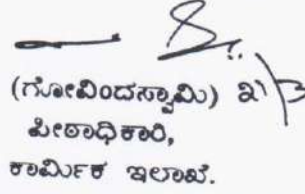 (ಗೋವಿಂದಸ್ವಾಮಿ)
ಪೀಠಾಧಿಕಾರಿ,
ಕಾರ್ಮಿಕ ಇಲಾಖೆ.